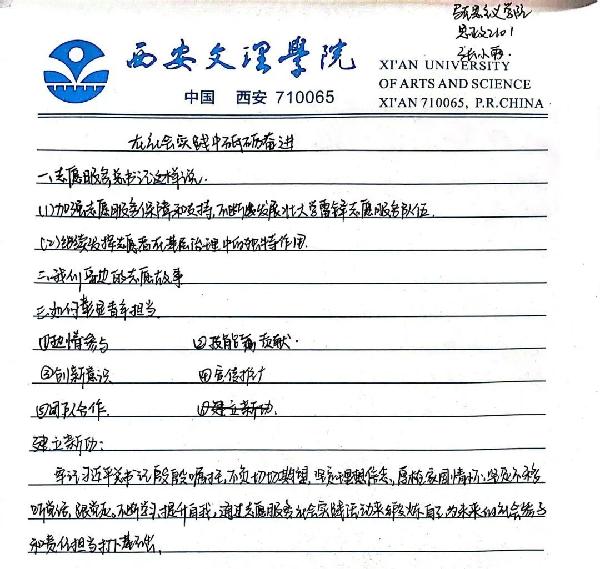 马克思主义学院
思政2101
张小雨.
西安文理學院
中国 西安 710065
XI'AN UNIVERSITY
OF ARTS AND SCIENCE
XI'AN 710065, P.R.CHINA
在社会实践中砥砺奋进
一、志愿服务总书记这样说.
(1)加强志愿服务保障和支持,不断发展壮大学雷锋志愿服务队伍.
(2)继续发挥志愿者在基层治理中的独特作用.
二、我们身边的志愿故事
三、如何彰显青年担当.
①热情参与 ②技能贡献.
③创新意识 ④宣传推广
⑤团队合作.
建立新功:
牢记习近平总书记殷殷嘱托,不负切切期望,坚定理想信念,厚植家国情怀,坚定不移
听党话、跟党走,不断学习,提升自我,通过志愿服务社会实践活动来锻炼自己,为未来的社会
和责任担当打下基础.